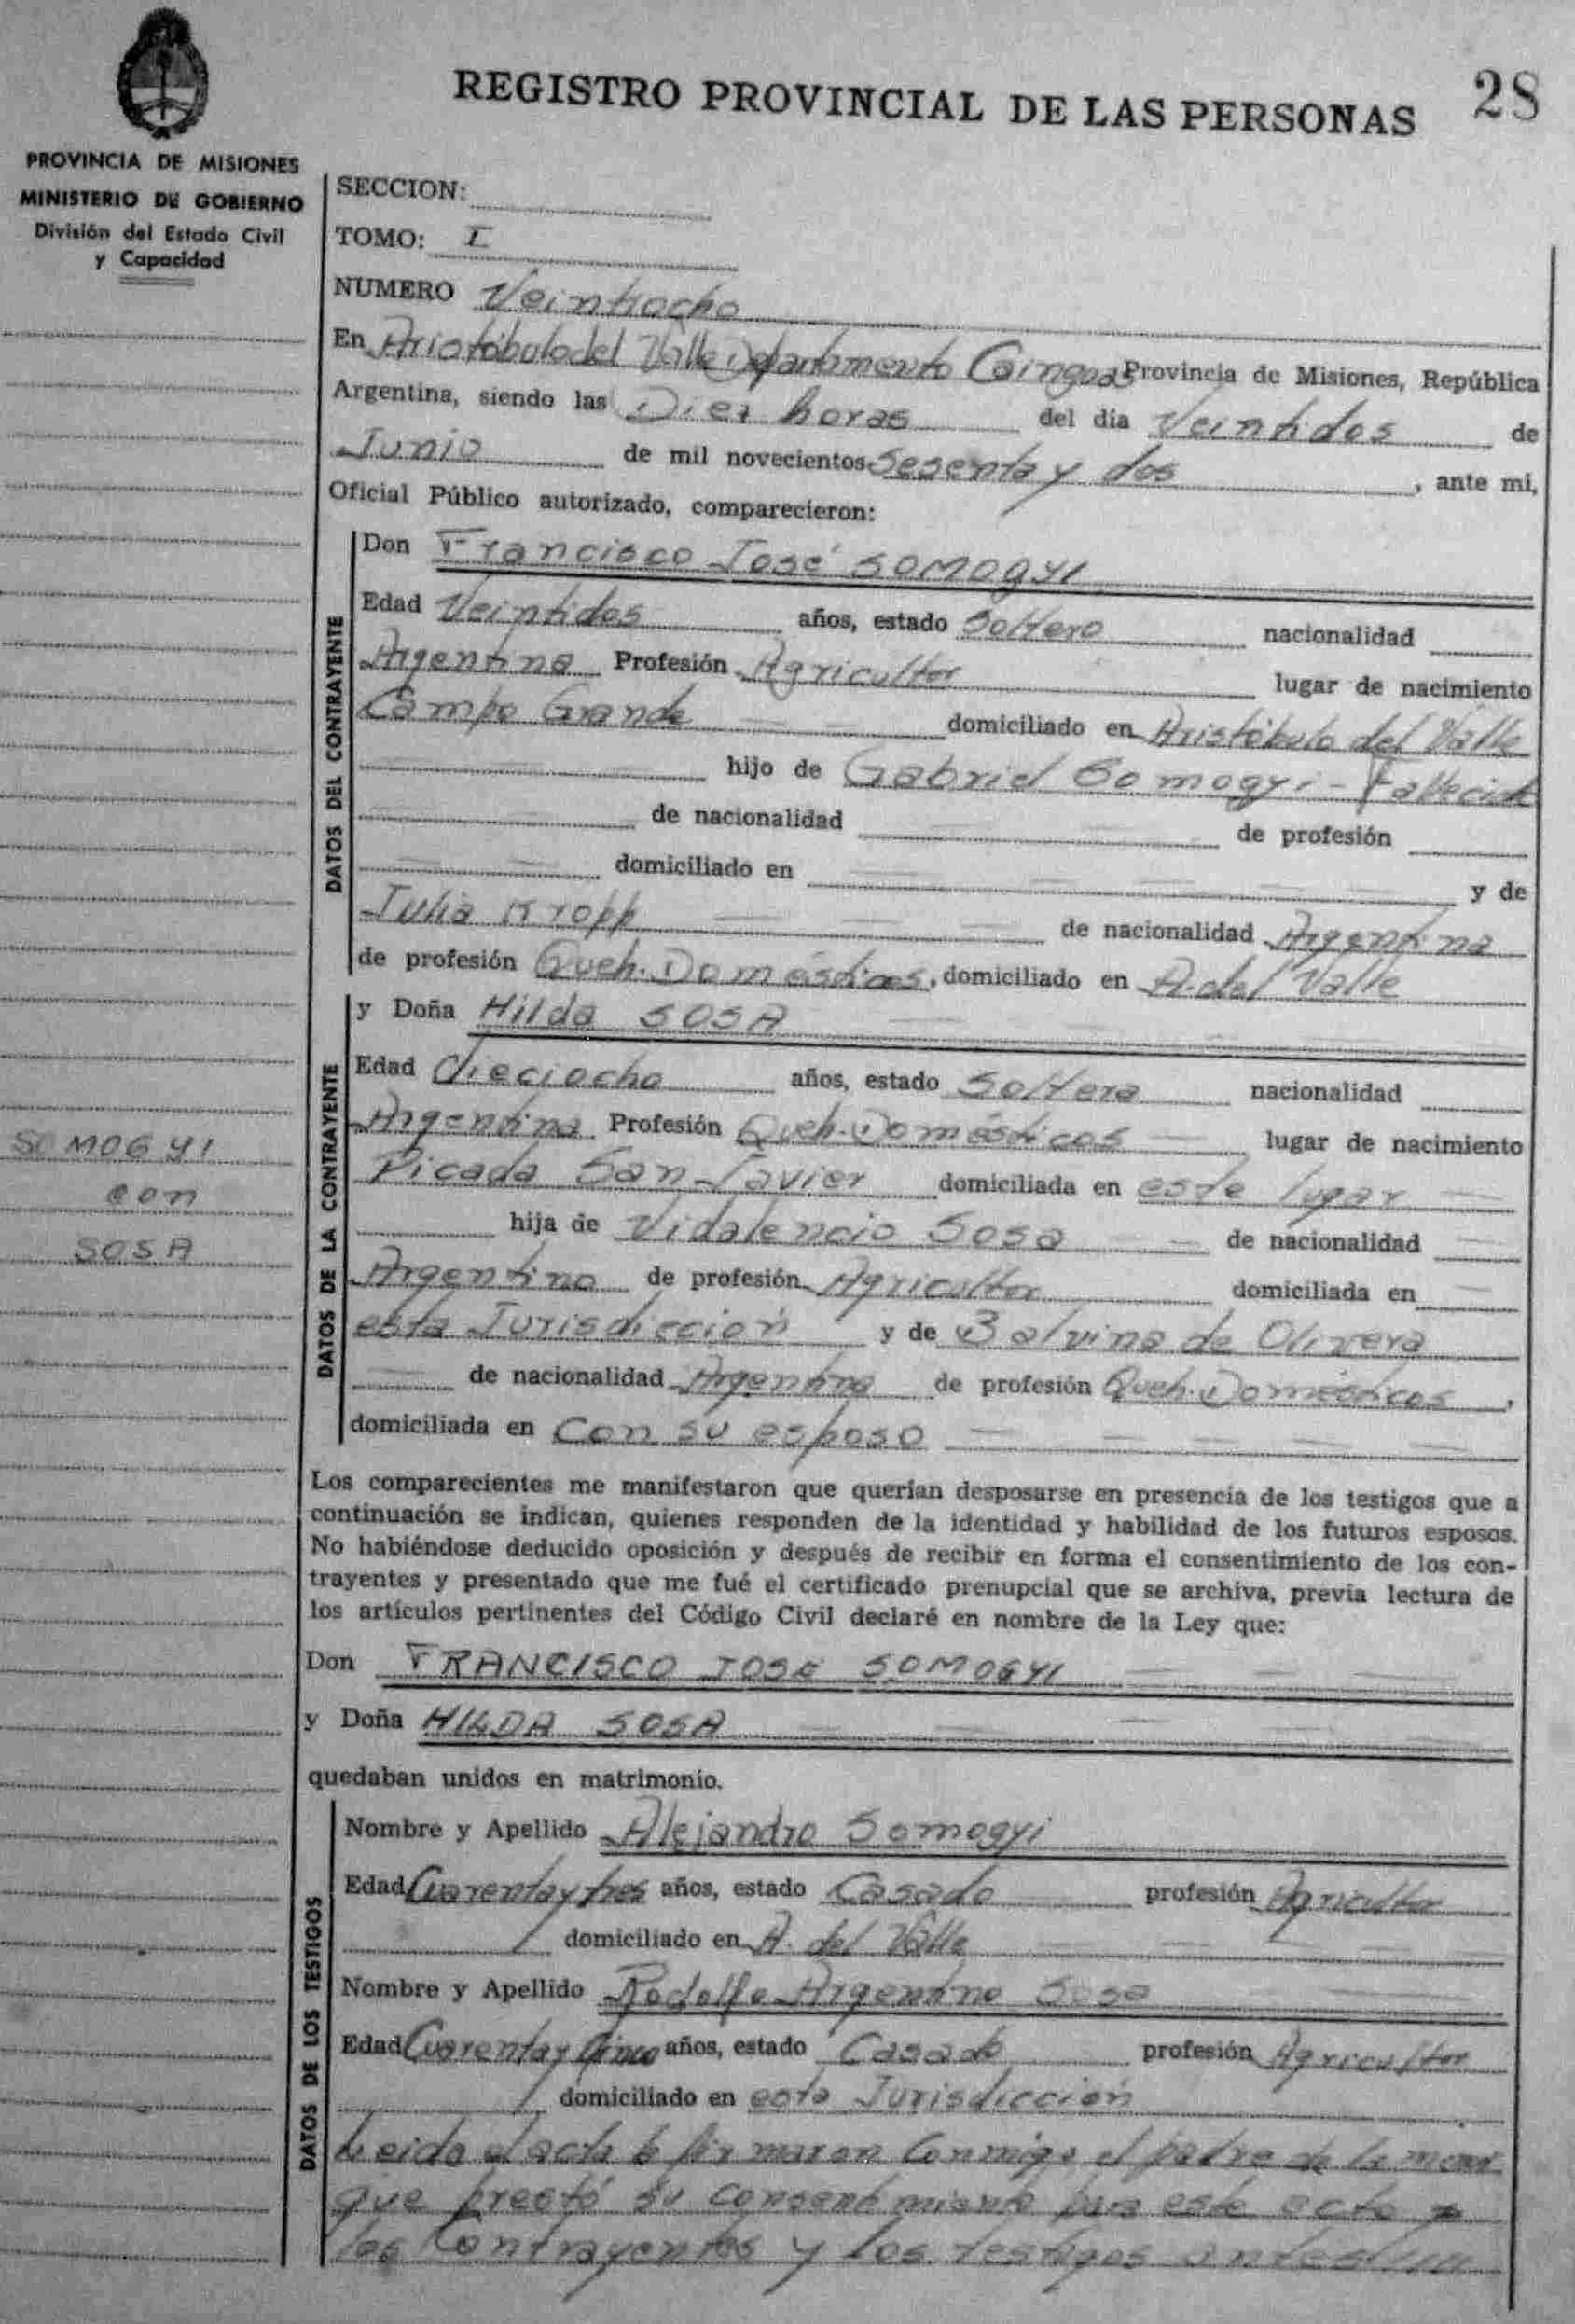 REGISTRO PROVINCIAL DE LAS PERSONAS 28
PROVINCIA DE MISIONES
MINISTERIO DE GOBIERNO
División del Estado Civil
y Capacidad
SECCION:
TOMO: I
NUMERO Veintiocho
En Aristóbulo del Valle Departamento Cainguas Provincia de Misiones, República
Argentina, siendo las Diez horas del día Veintidos de
Junio de mil novecientos Sesenta y dos, ante mi,
Oficial Público autorizado, comparecieron:
DATOS DEL CONTRAYENTE
Don Francisco José SOMOGYI
Edad Veintidos años, estado Soltero nacionalidad
Argentina Profesión Agricultor lugar de nacimiento
Campo Grande domiciliado en Aristóbulo del Valle
hijo de Gabriel Somogyi - Fallecido
de nacionalidad de profesión
domiciliado en y de
Julia Kropp de nacionalidad Argentina
de profesión Queh. Domésticos, domiciliado en A. del Valle
DATOS DE LA CONTRAYENTE
y Doña Hilda SOSA
Edad Dieciocho años, estado Soltera nacionalidad
Argentina Profesión Queh. Domésticos lugar de nacimiento
Picada San Javier domiciliada en este lugar
hija de Vidalencio Sosa de nacionalidad
Argentino de profesión Agricultor domiciliada en
esta Jurisdicción y de Balvina de Olivera
de nacionalidad Argentina de profesión Queh. Domésticos,
domiciliada en Con su esposo
SOMOGYI
con
SOSA
Los comparecientes me manifestaron que querían desposarse en presencia de los testigos que a
continuación se indican, quienes responden de la identidad y habilidad de los futuros esposos.
No habiéndose deducido oposición y después de recibir en forma el consentimiento de los con-
trayentes y presentado que me fué el certificado prenupcial que se archiva, previa lectura de
los artículos pertinentes del Código Civil declaré en nombre de la Ley que:
Don FRANCISCO JOSE SOMOGYI
y Doña HILDA SOSA
quedaban unidos en matrimonio.
DATOS DE LOS TESTIGOS
Nombre y Apellido Alejandro Somogyi
Edad Cuarenta y tres años, estado Casado profesión Agricultor
domiciliado en A. del Valle
Nombre y Apellido Rodolfo Argentino Sosa
Edad Cuarenta y Cinco años, estado Casado profesión Agricultor
domiciliado en esta Jurisdicción
Leida el acta la firmaron Conmigo el padre de la
que prestó su consentimiento para este acto
los Contrayentes y los testigos